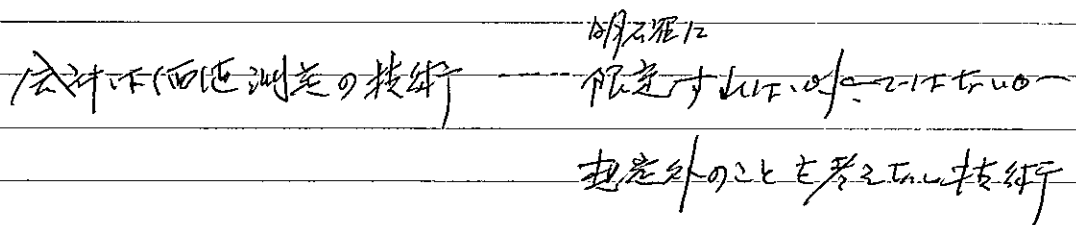 会計は価値測定の技術 ‥‥‥ 明確に
限定すればいかようではない
想定外のことを考えない技術